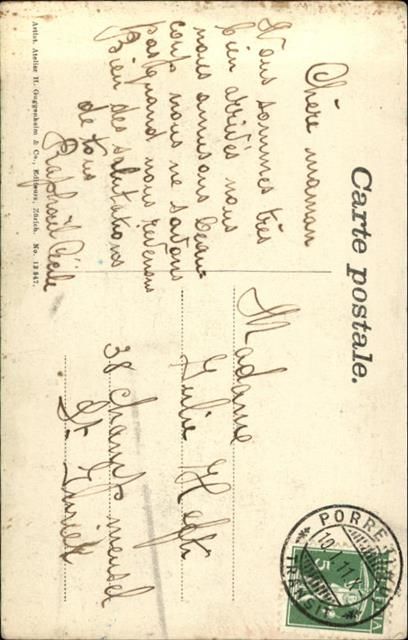 Carte postale.
Chère maman
Nous sommes très
bien arrivés nous
nous amusons beau-
coup nous ne savons
pas quand nous revenons
Bien des salutations
de tous
Raphaël Cécile
Madame
Julie
38
St
PORRE
TRANSIT
5
Artist. Atelier H. Guggenheim & Co., Editeurs, Zürich. No. 12847.